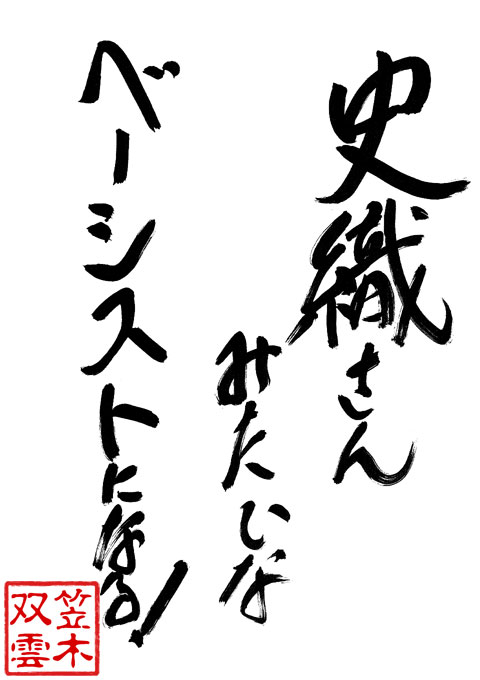 史織さん
みたいな
ベーシストになる!
笠木
双雲